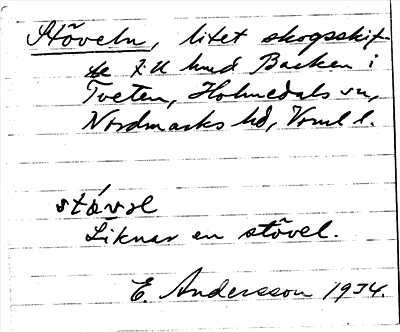 Stöveln, litet skogsskif-
te t. u hmd Backen i
Tveten, Holmedals sn,
Nordmarks hd, Vrml l.
stövel
Liknar en stövel.
E. Andersson 1934.